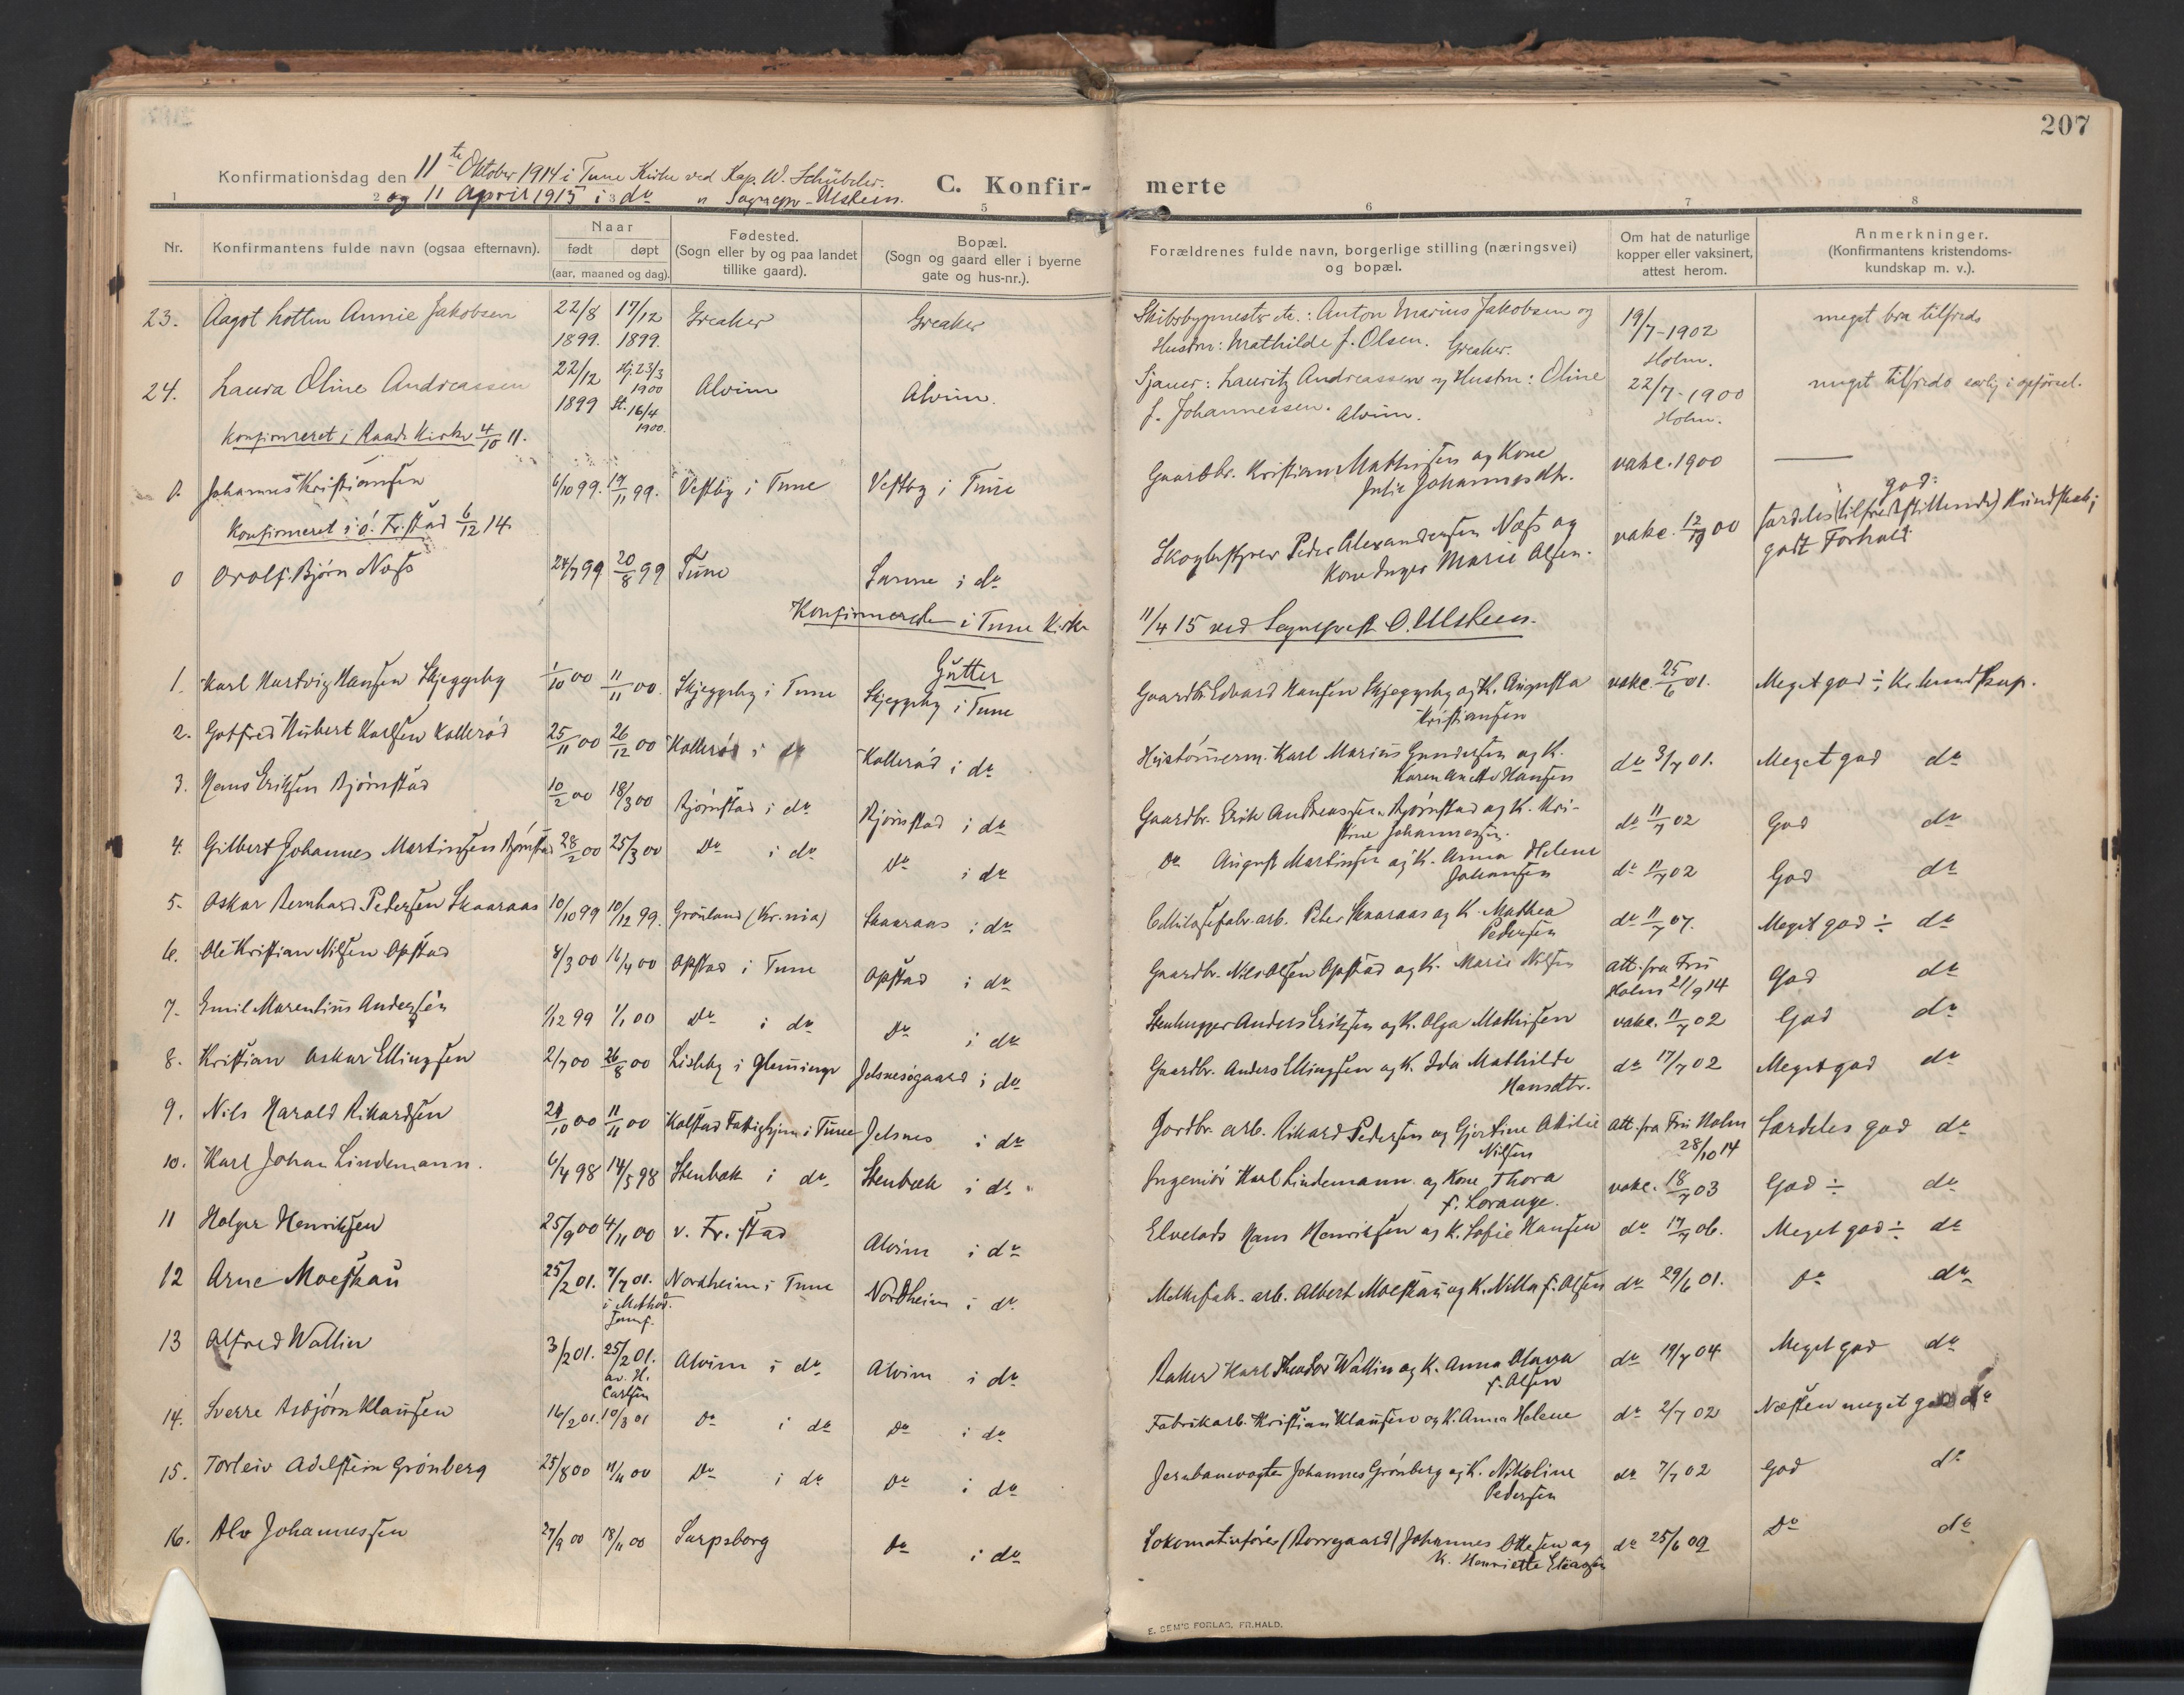 207
Konfirmationsdag den 11te Oktober 1914 i Tune Kirke ved Kap. W. Schübeler.
og 11 April 1915 i do " Sognepr. Ulsteen.
C. Konfir- merte
1 2 3 5 6 7 8
Nr. Konfirmantens fulde navn (ogsaa efternavn). Naar født døpt (aar, maaned og dag). Fødested. (Sogn eller by og paa landet tillike gaard). Bopæl. (Sogn og gaard eller i byerne gate og hus-nr.). Forældrenes fulde navn, borgerlige stilling (næringsvei) og bopæl. Om hat de naturlige kopper eller vaksinert, attest herom. Anmerkninger. (Konfirmantens kristendoms-kundskap m. v.).
23. Aagot Annie Jakobsen 22/8 1899. 17/12 1899. Greaker Greaker Anton Marius Jakobsen og
Hustru: Mathilde f. Olsen. Greaker. 19/7-1902 Holm. meget bra tilfreds
24. Laura Oline Andreassen 22/12 1899 Hj. 23/3 1900 St. 16/4 1900. Alvim Alvim. Sjauer: Lauritz Andreassen og Hustru: Oline
f. Johannessen. Alvim. 22/7-1900 Holm. meget tilfreds særlig i opførsel.
Konfirmeret i Raade Kirke 4/10 11.
0. Johannes Kristiansen 6/10 99. 19/11 99. Vestby i Tune Vestby i Tune Gaardbr. Kristian Mathisen og Kone
Julie Johannesdtr. vakc. 1900 —
Konfirmeret i ö. Fr.stad 6/12 14.
0 Orolf Bjørn Næss 24/7 99 20/8 99 Tune i do Skogbestyrer Peder Alexandersen Næss og
Kone Inger Marie Olsen. vakc. 12/9 00 god:
særdeles (tilfredsstillende) Kundskab;
godt Forhold
Konfirmerede i Tune Kirke 11/4 15 ved Sognepræst O. Ulsteen.
Gutter
1. Karl Hartvig Hansen Skjeggeby 1/10 00 11/11 00. Skjeggeby i Tune Skjeggeby i Tune Gaardbr. Edvard Hansen Skjeggeby og K. Augusta
Kristiansen vakc. 25/6 01. Meget god ÷ Kr.kundskap.
2. Gotfred Hubert Karlsen Kallerød 25/11 00 26/12 00 Kallerød i do Kallerød i do Hustømerm. Karl Marius Gundersen og K.
Karen Anette Hansen do 3/7 01. Meget god do
3. Hans Eriksen Bjørnstad 10/2 00 18/3 00 Bjørnstad i do Bjørnstad i do Gaardbr. Erik Andreassen Bjørnstad og K. Kri-
stine Johannessen. do 11/7 02 God do
4. Gilbert Johannes Martinsen Bjørnstad 28/2 00 25/3 00 Do i do Do i do Do August Martinsen og K. Anna Helene
Johansen do 11/7 02 God do
5. Oskar Bernhard Pedersen Skaaraas 10/10 99 10/12 99. Grønland (Kr.nia) Skaaraas i do Cellulosefabr.arb. Peter Skaaraas og K. Mathea
Pedersen do 11/7 07. Meget god ÷ do
6. Ole Kristian Nilsen Opstad 4/3 00 16/4 00 Opstad i Tune Opstad i do Gaardbr. Nils Olsen Opstad og K. Marie Nilsen att. fra Fru
Holm 21/9 14 God do
7. Emil Marentius Andersen 1/12 99 1/1 00 Do i do Do i do Stenhugger Anders Eriksen og K. Olga Mathisen vakc. 11/7 02 God do
8. Kristian Oskar Ellingsen 2/7 00 26/8 00 Lisleby i Glemminge Jelsnesøgaard i do Gaardbr. Anders Ellingsen og K. Ida Mathilde
Hansdtr. do 17/7 02 Meget god do
9. Nils Harald Rikardsen 29/10 00 11/11 00 Kalstad Fattighjem i Tune Jelsnes i do Jordbr. arb. Rikard Pedersen og Gjertine Otilie
Nilsen att. fra Fru Holm
28/10 14 Særdeles god do
10. Karl Johan Lindemann. 6/4 98 14/5 98 Stenbæk i do. Stenbæk i do. Ingeniør Karl Lindemann og Kone Thora
f. Lorange. vakc. 18/7 03 God ÷ do
11 Holger Henriksen 25/9 00 4/11 00 v. Fr.stad Alvim i do Elvelods Hans Henriksen og K. Sofie Hansen do 17/7 06. Meget god ÷ do
12 Arne Moeskau 25/2 01. 7/7 01. i Method. Nordheim i Tune Nordheim i do Melkefabr. arb. Albert Moeskau og K. Nilla f. Olsen do 29/6 01. Do do
13 Alfred Wallin 3/2 01. 25/2 01. av H. Carlsen Alvim i do Alvim i do Baker Karl Theodor Wallin og K. Anna Olava
f. Olsen do 19/7 04 Meget god do
14. Sverre Asbjørn Klausen 16/2 01. 10/3 01 Do i do Do i do Fabrikarb. Kristian Klausen og K. Anna Helene do 2/7 02 Næsten meget god do
15. Torleiv Adelstein Grønberg 25/8 00 11/11 00 Do i do Do i do Jernbanevogter Johannes Grønberg og K. Nikoline
Pedersen do 7/7 02 God do
16. Alv Johannessen 27/9 00 18/11 00 Sarpsborg Do i do Lokomotivfører (Borregaard) Johannes Ottesen og
K. Henriette Eliassen do 25/6 09 Do do
E. SEM'S FORLAG, FR.HALD.